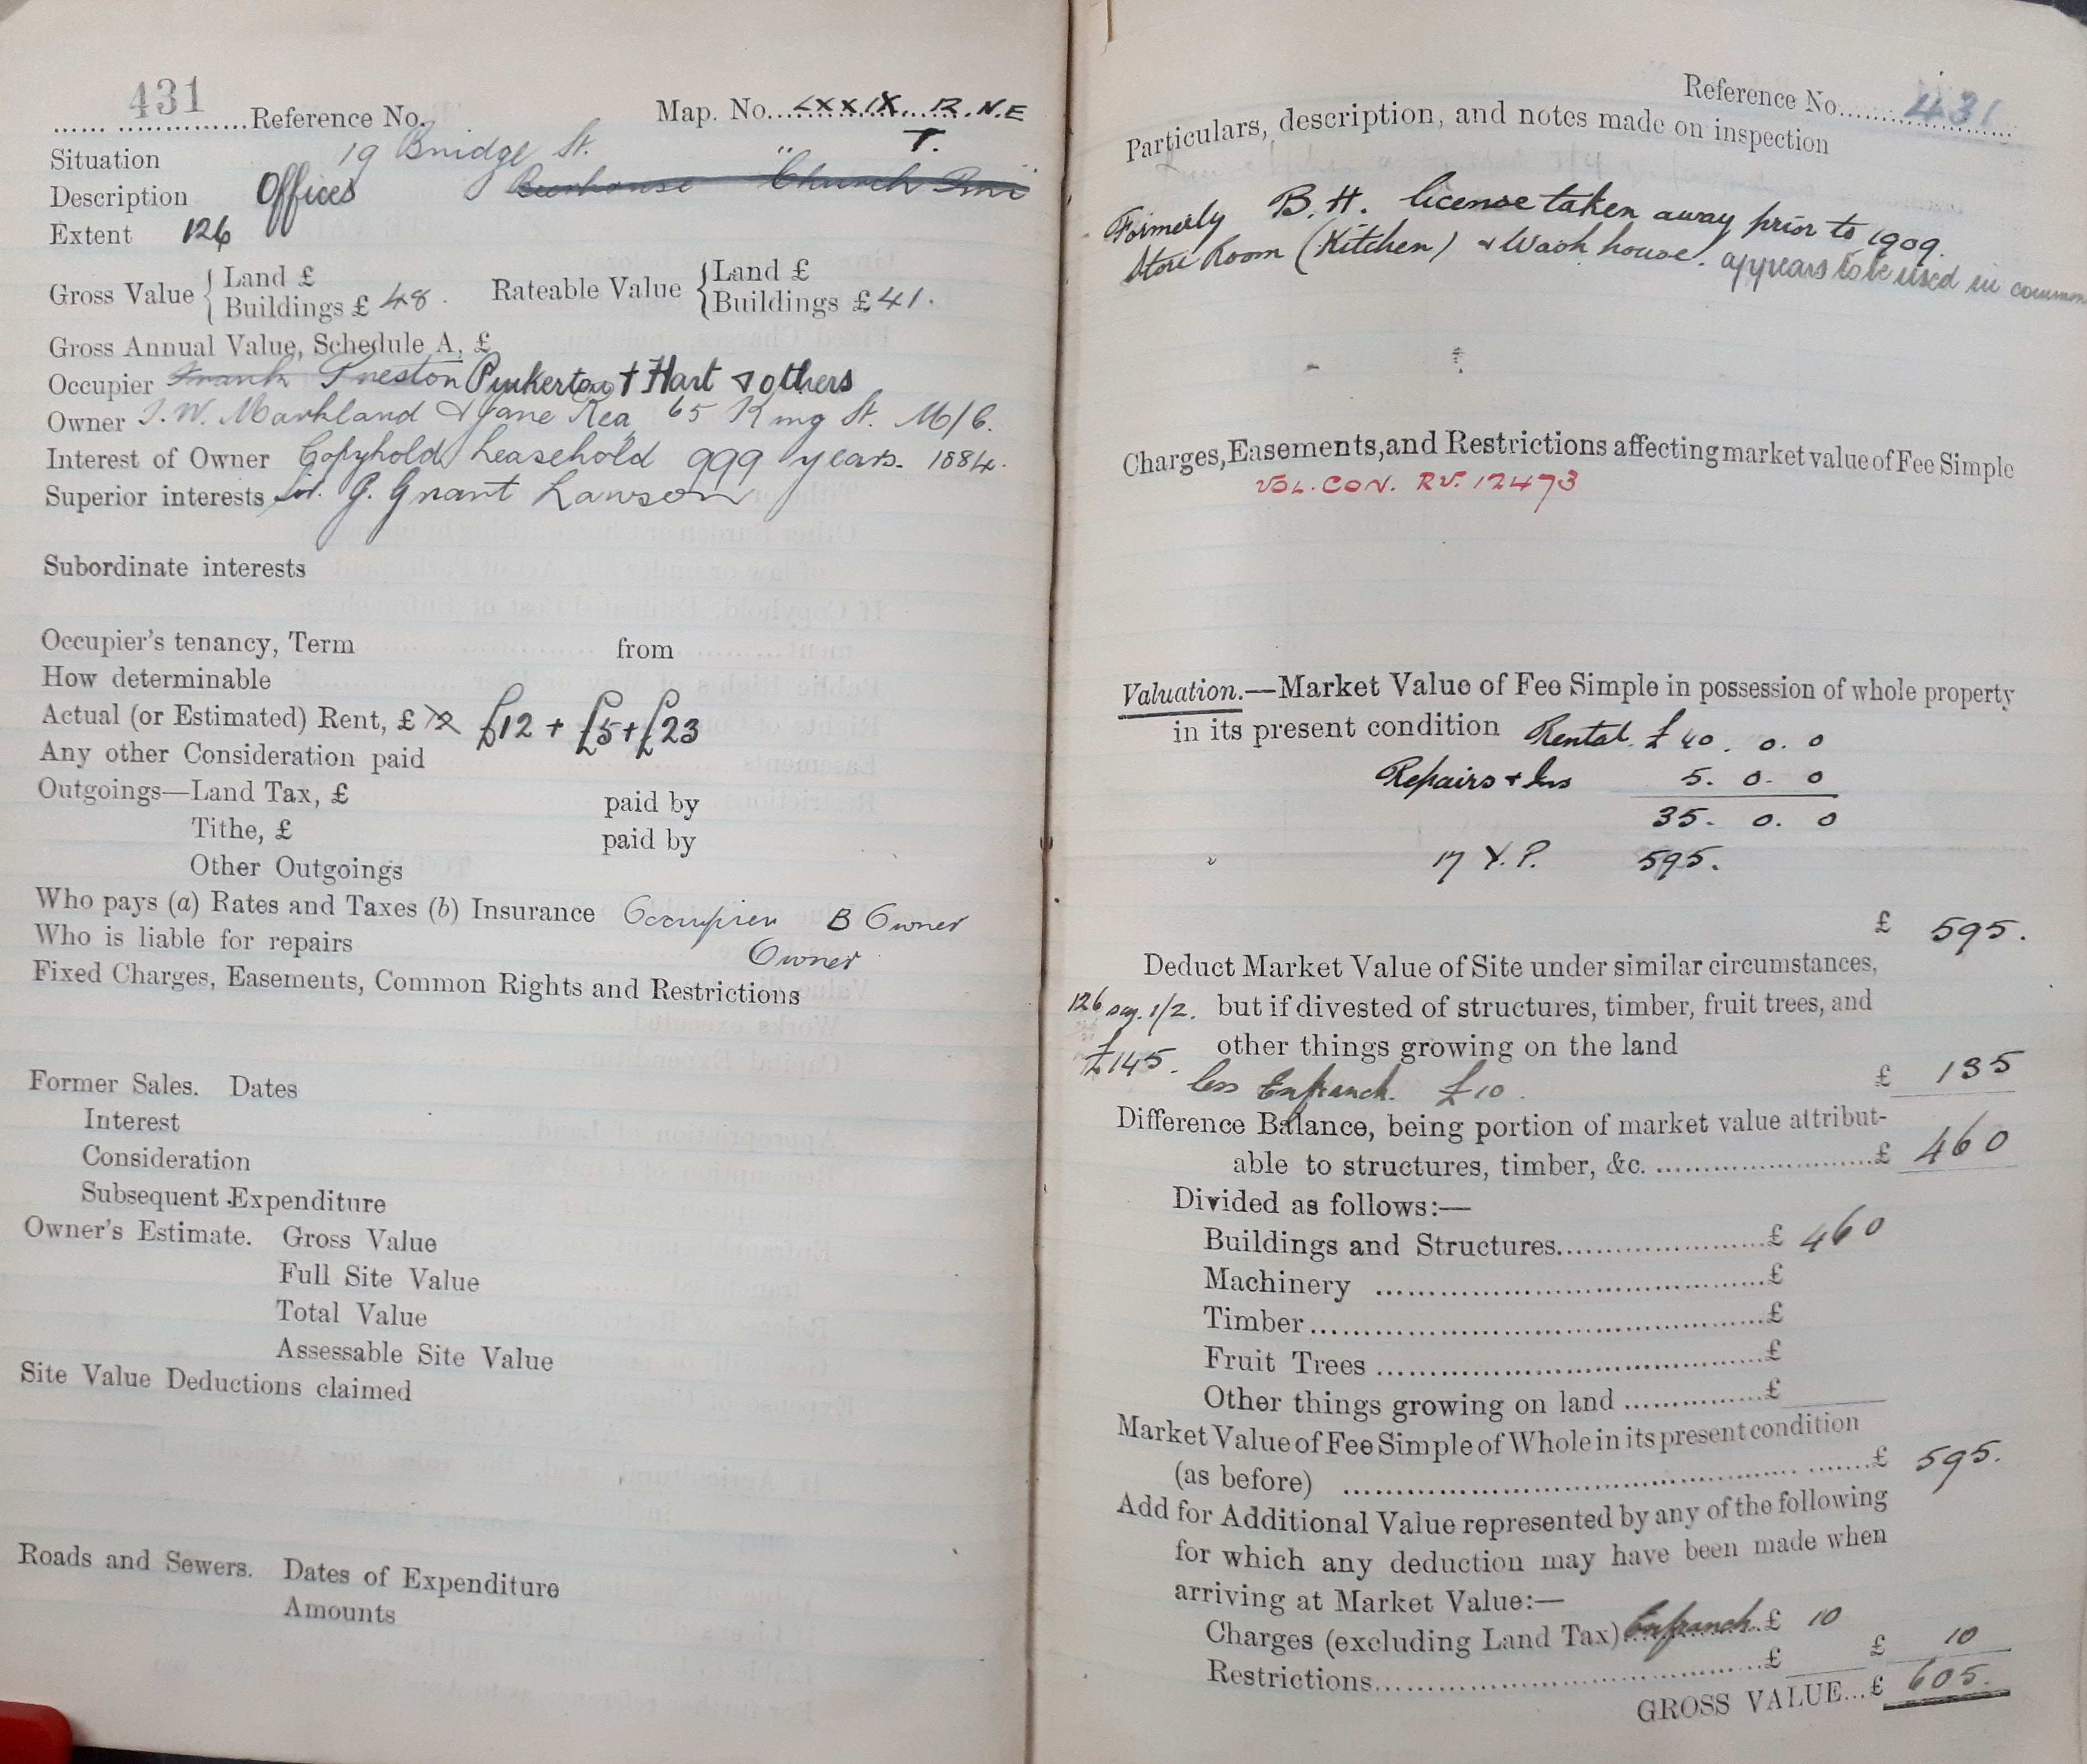 431 Reference No. Map. No. LXXIX. 12. N.E
T.
Situation 19 Bridge St.
Description Offices Beerhouse "Church Inn
Extent 126
Gross Value { Land £ Rateable Value { Land £
Buildings £ 48. Buildings £ 41.
Gross Annual Value, Schedule A, £
Occupier Frank Preston Pinkerton + Hart & others
Owner J.W. Markland & Jane Rea 65 King St. M/C.
Interest of Owner Copyhold Leasehold 999 years. 1884.
Superior interests Sir. G. Grant Lawson
Subordinate interests
Occupier's tenancy, Term from
How determinable
Actual (or Estimated) Rent, £ £12 + £5 + £23
Any other Consideration paid
Outgoings—Land Tax, £ paid by
Tithe, £ paid by
Other Outgoings
Who pays (a) Rates and Taxes (b) Insurance Occupier B Owner
Who is liable for repairs Owner
Fixed Charges, Easements, Common Rights and Restrictions
Former Sales. Dates
Interest
Consideration
Subsequent Expenditure
Owner's Estimate. Gross Value
Full Site Value
Total Value
Assessable Site Value
Site Value Deductions claimed
Roads and Sewers. Dates of Expenditure
Amounts
Reference No. 431
Particulars, description, and notes made on inspection
Formerly B.H. license taken away prior to 1909.
Store Room (Kitchen) & Wash house. appears to be used in common
Charges, Easements, and Restrictions affecting market value of Fee Simple
VOL. CON. RV. 12473
Valuation.—Market Value of Fee Simple in possession of whole property
in its present condition Rental. £ 40. 0. 0
Repairs + Ins 5. 0. 0
35. 0. 0
17 Y.P. 595.
£ 595.
Deduct Market Value of Site under similar circumstances,
126 sq. 1/2. but if divested of structures, timber, fruit trees, and
£145. other things growing on the land £ 135
less Enfranch. £10.
Difference Balance, being portion of market value attribut-
able to structures, timber, &c. £ 460
Divided as follows:—
Buildings and Structures £ 460
Machinery £
Timber £
Fruit Trees £
Other things growing on land £
Market Value of Fee Simple of Whole in its present condition
(as before) £ 595.
Add for Additional Value represented by any of the following
for which any deduction may have been made when
arriving at Market Value:—
Charges (excluding Land Tax) Enfranch. £ 10
Restrictions £ £ 10
GROSS VALUE...£ 605.